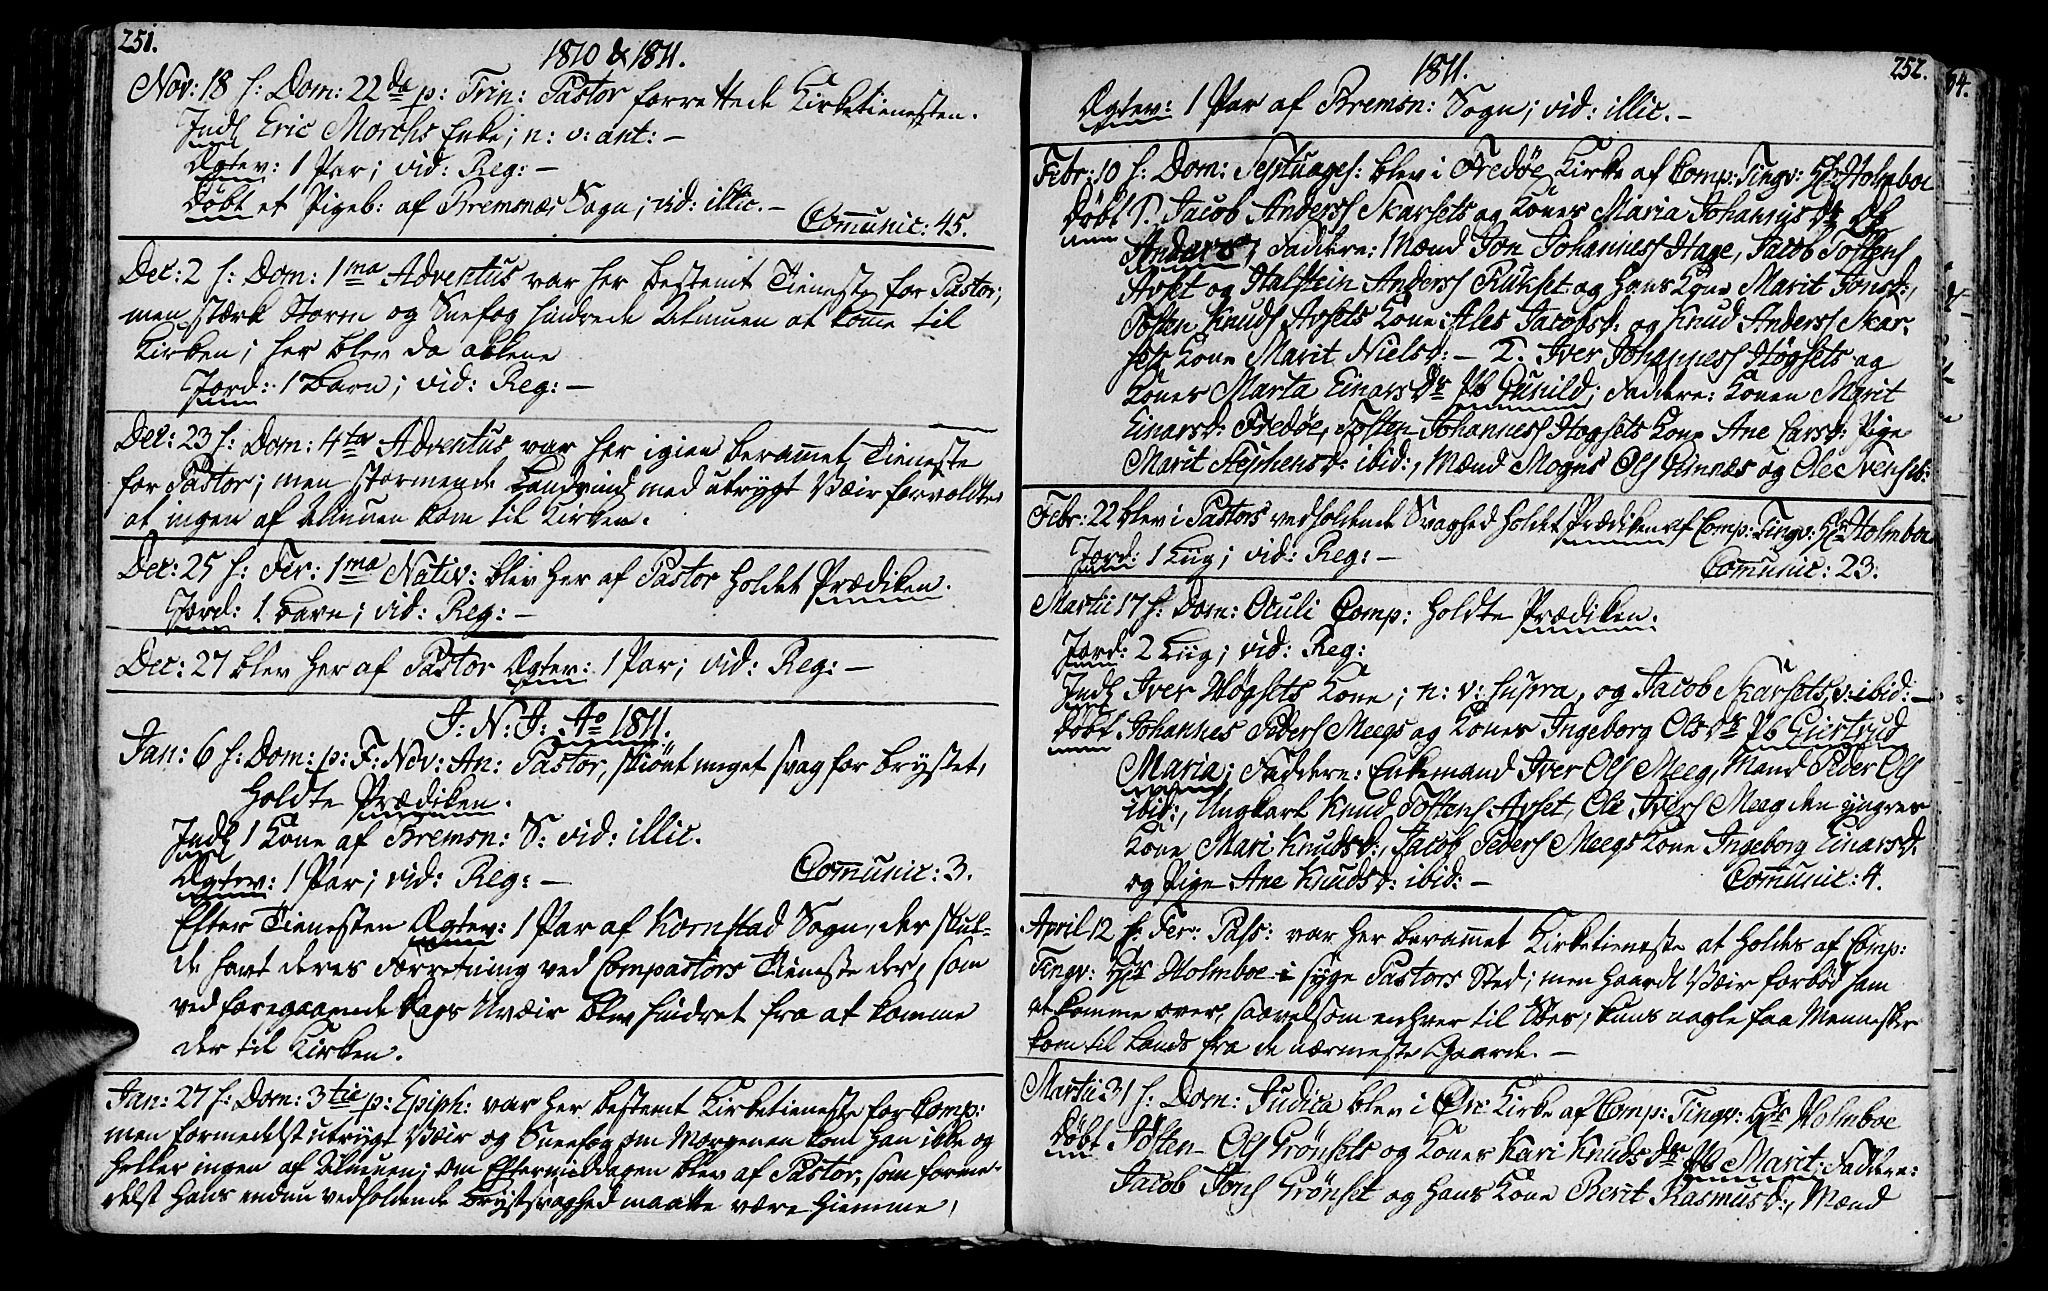 251.
1810 & 1811.
Nov: 18 h: Dom: 22da p: Trin: Pastor forrettede Kirketienesten.
Indl Eric Morchs Enke; n: v: ant: -
Ægtev: 1 Par; vid: Reg: -
Døbt et Pigeb: af Bremsnæs Sogn; vid: illic. -
Comunic: 45.
Dec: 2 h: Dom: 1ma Adventus var her bestemt Tieneste for Pastor;
men stærk Storm og Sneefog hindrede Almuen at kome til
Kirken; her blev da allene
Jord: 1 Barn; vid: Reg: -
Dec: 23 h: Dom: 4ta Adventus var her igien beramet Tieneste
for Pastor; men stormende Landvind med utrygt Væir forvoldte
at ingen af Almuen kom til Kirken.
Dec: 25 h: Fer: 1ma Nativ: blev her af Pastor holdet Prædiken.
Jord: 1 Barn; vid: Reg: -
Dec: 27 blev her af Pastor Ægtev: 1 Par; vid: Reg: -
J: N: J: Ao 1811.
Jan: 6 h: Dom: p: F: Nov: An: Pastor, skiønt meget svag for Brystet,
holdte Prædiken.
Indl 1 Kone af Bremsn: S: vid: illic.
Ægtev: 1 Par; vid: Reg: -
Comunic: 3.
Efter Tienesten Ægtev: 1 Par af Kornstad Sogn, der skul-
de havt deres Forretning ved Compastors Tieneste der, som
ved foregaaende Dags Uvæir blev hindret fra at komme
der til Kirken.
Jan: 27 h: Dom: 3tie p: Epiph: var her bestemt Kirketieneste for Comp:
men formedelst utrygt Væir og Sneefog om Morgenen kom han ikke og
heller ingen af Almuen; om Eftermiddagen blev af Pastor, som forme-
delst hans endnu vedholdende Brystsvaghed maatte være hiemme,
252.
1811.
Ægtev: 1 Par af Bremsn: Sogn; vid: illic. -
Febr: 10 h: Dom: Septuages: blev i Fredøe Kirke af Comp: Tingv: Hr Holmboe
Døbt Jacob Anders Skarsets og Kones Maria Johannis Dr Db
Anders; Faddere: Mænd Jon Johanness Hage, Jacob Tostens
Avset og Halstein Anders Rükset og hans Kone Marit Jonsd:,
Tosten Knuds Avsets Kone Ales Jacobsd: og Knud Anders Skar-
sets Kone Marit Nielsd: - Iver Johanness Høgsets og
Kones Marta Einars Dr Pb Gunild; Faddere: Konen Marit
Einarsd: Fredøe, Tosten Johanness Høgsets Kone Ane Larsd: Pige
Marit Stephensd: ibid:, Mænd Mogns Ols og Ole
Febr: 22 blev i Pastors vedholdende Svaghed holdet Prædiken af Comp: Tingv: Hr Holmboe
Jord: 1 Liig; vid: Reg: -
Comunic: 23.
Martii 17 h: Dom: Oculi Comp: holdte Prædiken.
Jord: 2 Liig; vid: Reg:
Indl Iver Høgsets Kone; n: v: supra, og Jacob Skarsets, v: ibid: -
Døbt Johannes Peders Meegs og Kones Ingeborg Ols Dr Pb Giertrud
Maria; Faddere: Enkemand Iver Ols Meeg, Mand Peder Ols
ibid:, Ungkarl Knud Tostens Avset, Ole Ivers Meeg den yngres
Kone Mari Knudsd:, Jacob Peders Meegs Kone Ingeborg Einarsd:
og Pige Ane Knudsd: ibid: -
Comunic: 4.
April 12 h: Fer: Pass: var her beramet Kirketieneste at holdes af Comp:
Tingv: Hr Holmboe i syge Pastors Sted; men haardt Væir forbød ham
at komme over, saavelsom enhver til Søes; kuns nogle faa Mennesker
kom til Lands fra de nærmeste Gaarde. -
Martii 31 h: Dom: Judica blev i Kirke af Comp: Tingv: Hr Holmboe
Døbt Tosten Ols Grønsets og Kones Kari Knuds Dr Pb Marit; Faddere:
Jacob Jons Grønset og hans Kone Berit Rasmusd:, Mænd